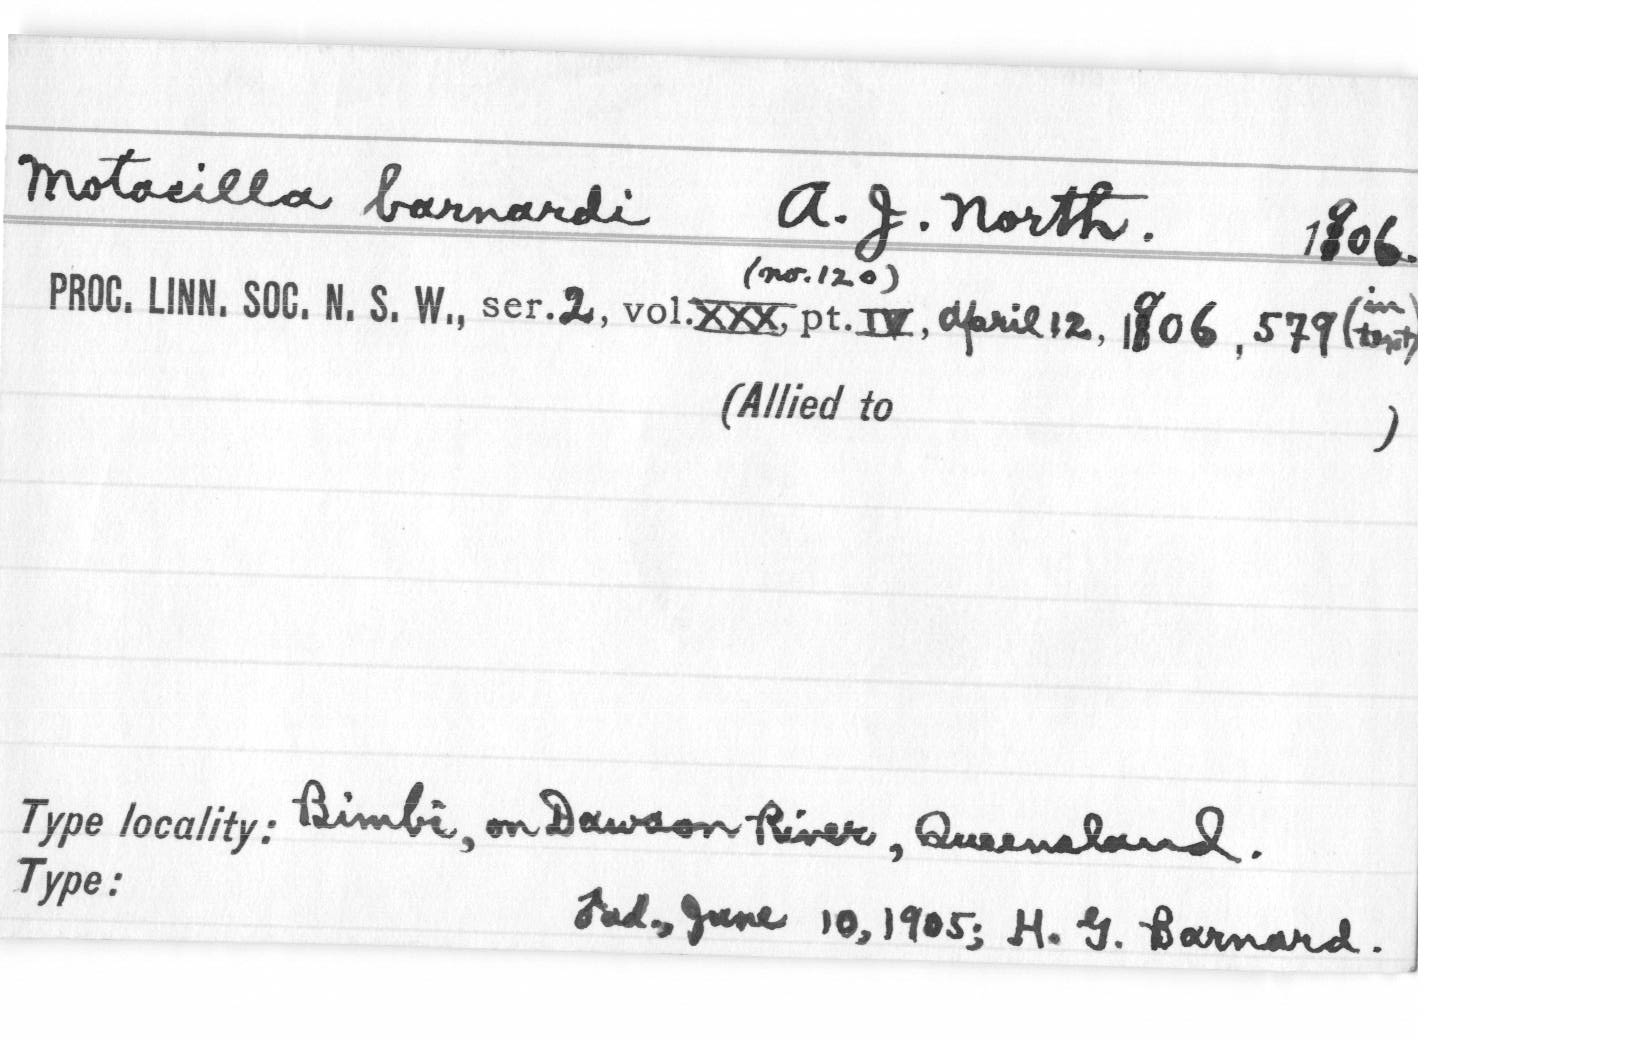 Motacilla barnardi A. J. North. 1906.
(no. 120)
PROC. LINN. SOC. N. S. W., ser. 2, vol. XXX, pt. IV, April 12, 1906, 579 (in text)
(Allied to )
Type locality: Bimbi, on Dawson River, Queensland.
Type:
ad., June 10, 1905; H. G. Barnard.